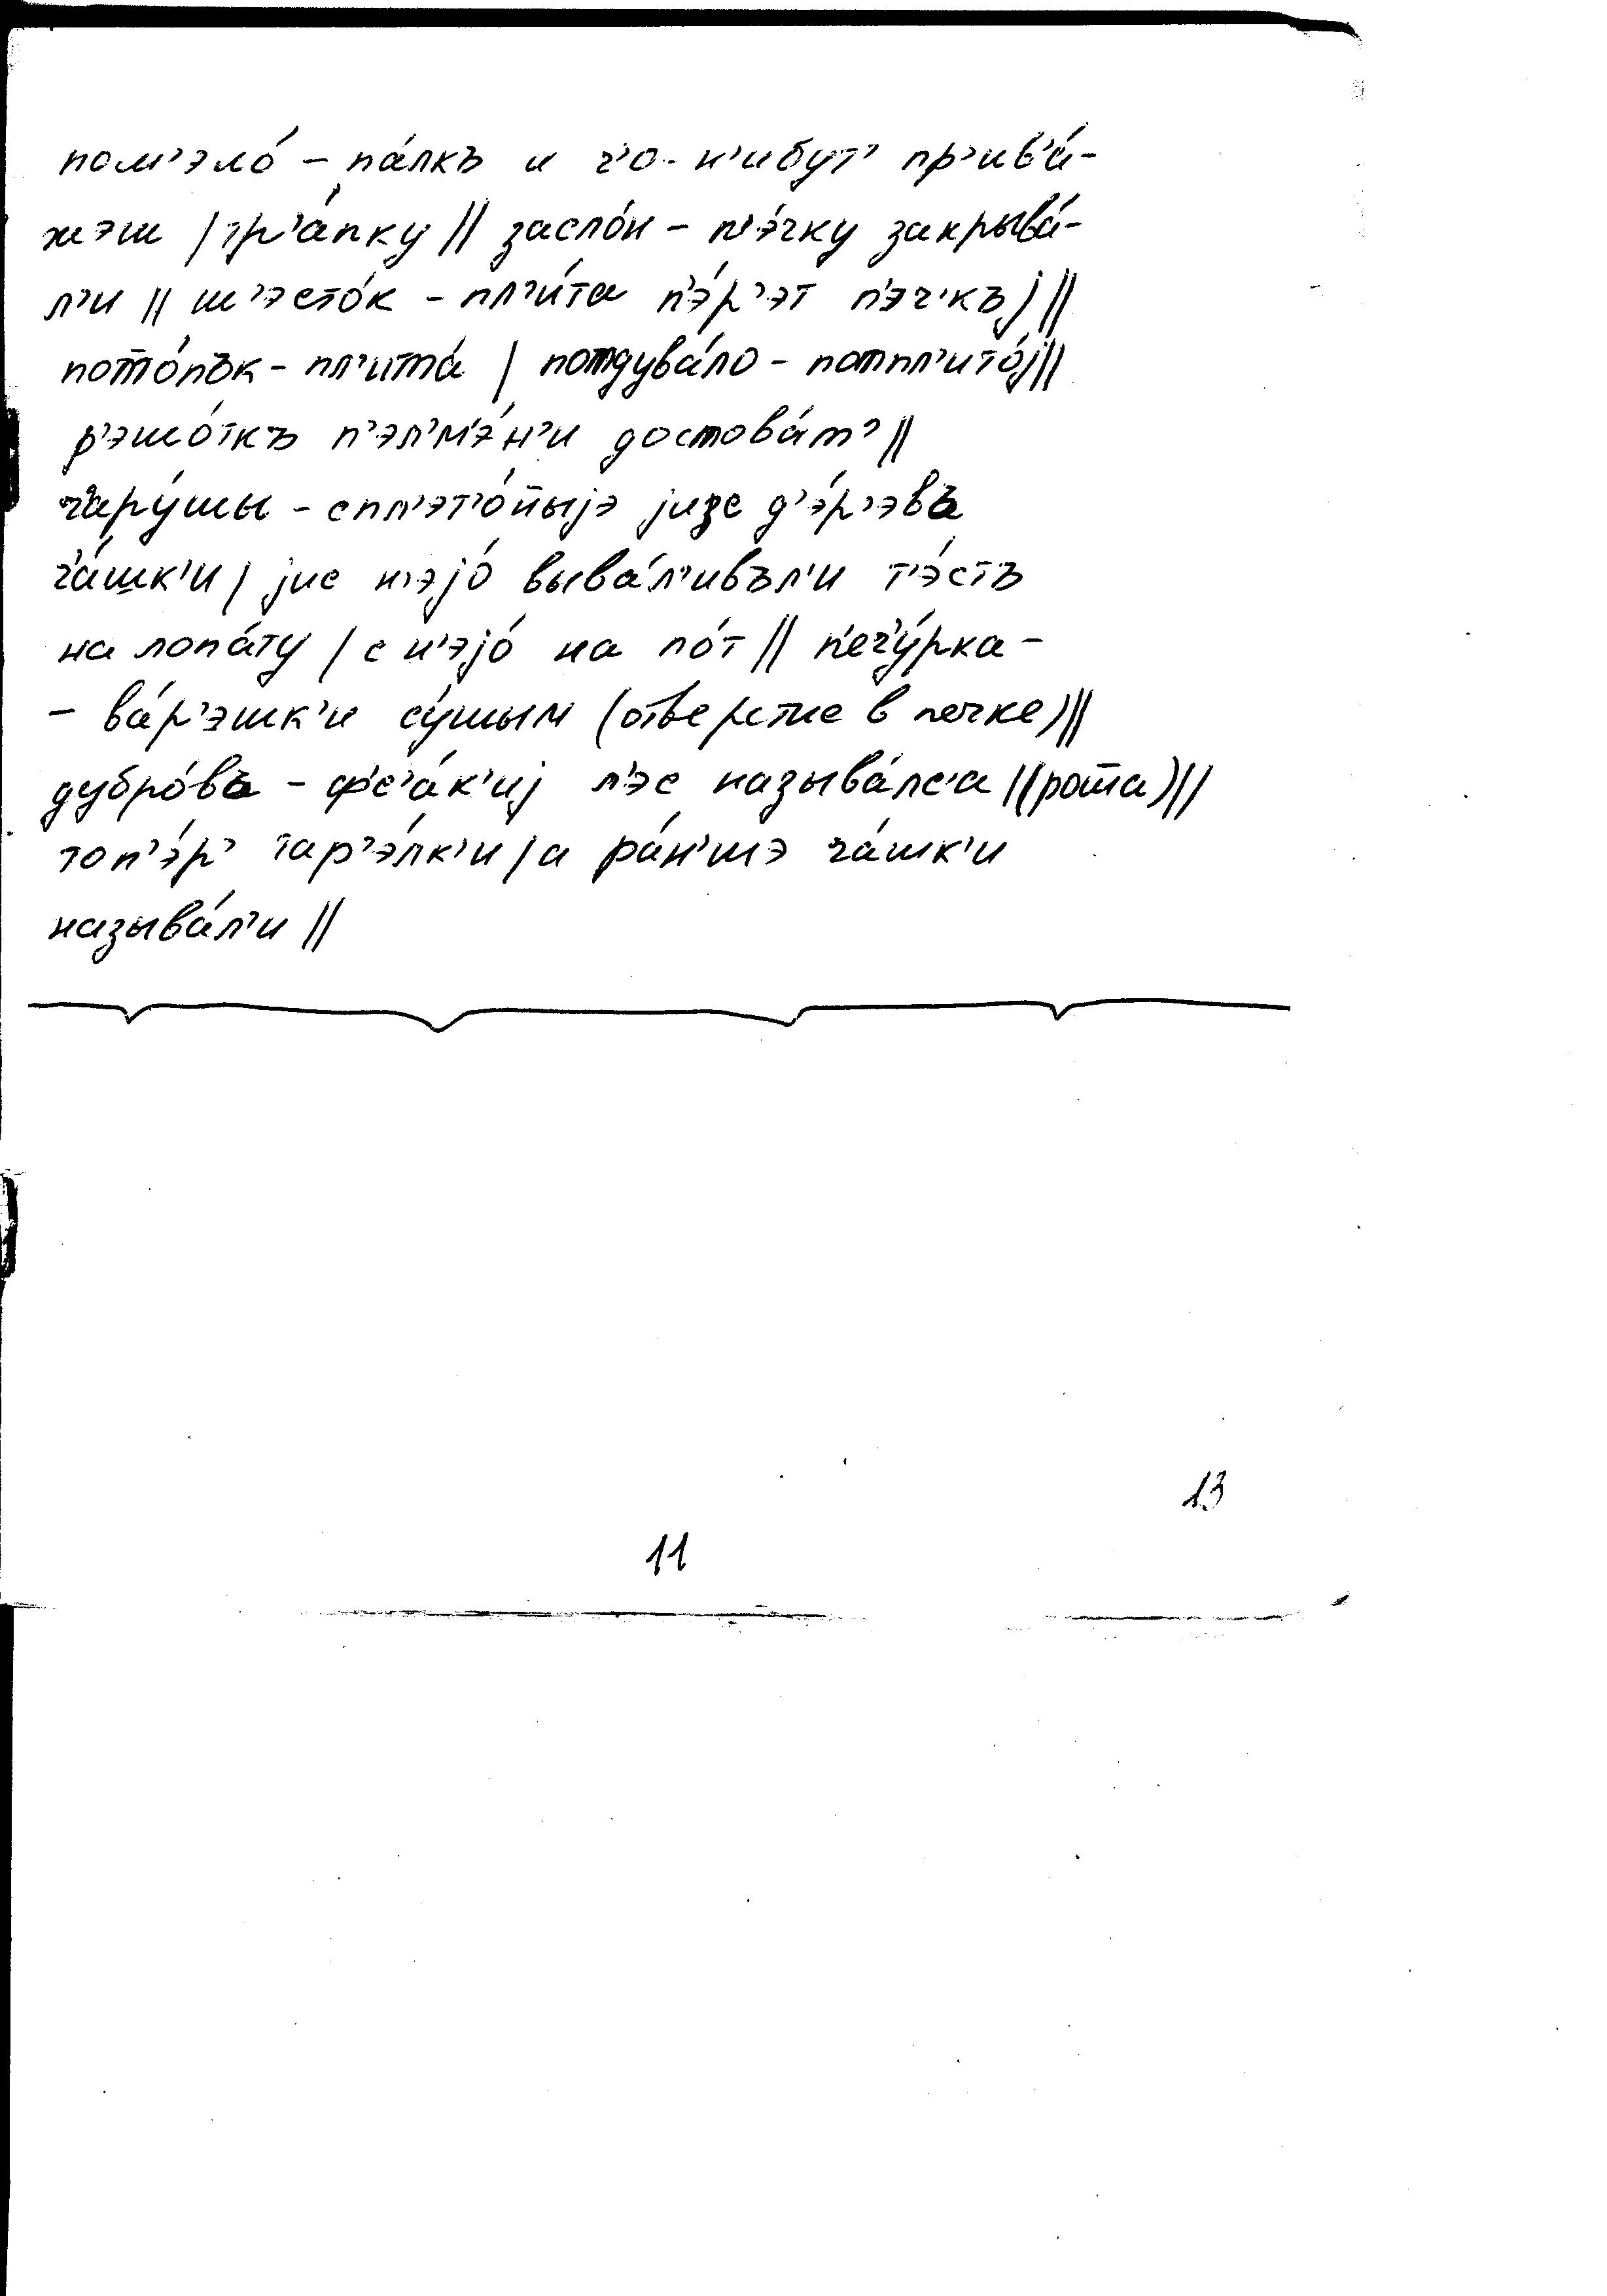 пом'эло́ – па́лкъ и ч'о-н'ибут' пр'ив'а́-
жэш | тр'а́пку || засло́н – п'э́чку закрыва́-
л'и || ш'эсто́к – пл'и́та п'э́р'эт п'эч'къj ||
пото́пък – пл'ита́ | потдува́ло – потпл'ито́j ||
р'эшо́ткъ п'эл'м'э́н'и достова́т' ||
ч'ару́шы – спл'эт'о́ныjэ jизс д'э́р'эва
ч'а́шк'и | jис н'эjо́ выва́л'ивъл'и т'э́стъ
на лопа́ту | с н'эjо́ на по́т || п'еч'у́рка –
– ва́р'эшк'и су́шым (отверстие в печке) ||
дубро́ва – фс'а́к'иj л'эс называ́лс'а || (роща) ||
топ'э́р' тар'э́лк'и | а ра́н'шэ ча́шк'и
называ́л'и ||
13
11